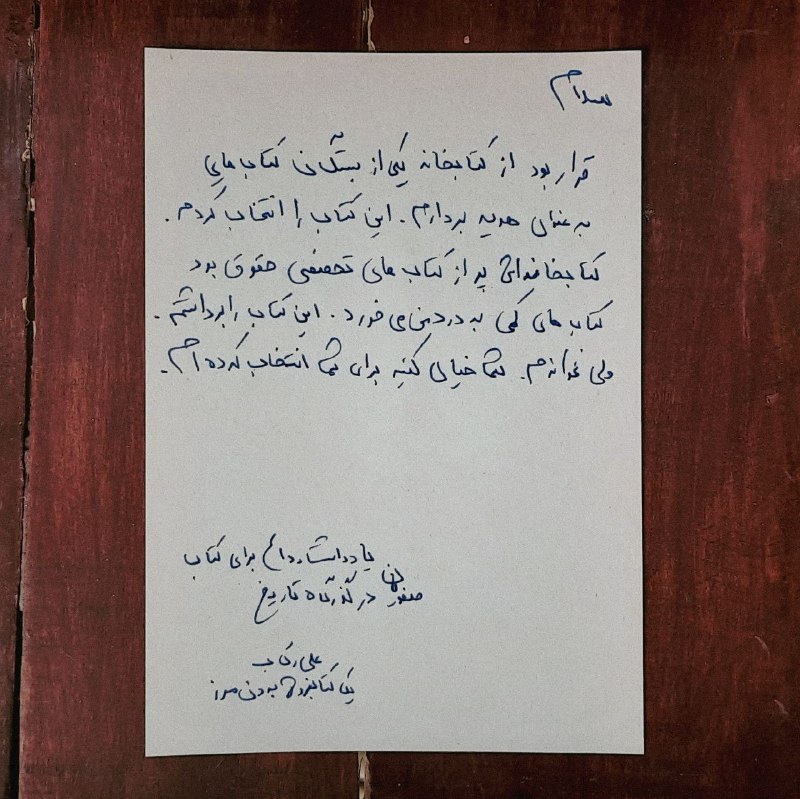 سلام
قرار بود از کتابخانه یکی از بستگان کتاب هایی
به عنوان هدیه بردارم. این کتاب را انتخاب کردم.
کتابخانه‌ای پر از کتاب های تخصصی حقوق بود
کتاب های کمی به درد من می خورد. این کتاب را برداشتم.
ولی نخواندم. شما خیال کنید برای شما انتخاب کرده ام.
یادداشت برای کتاب
در گذرگاه تاریخ
علی رکاب
یک کتابفروش بدون مرز